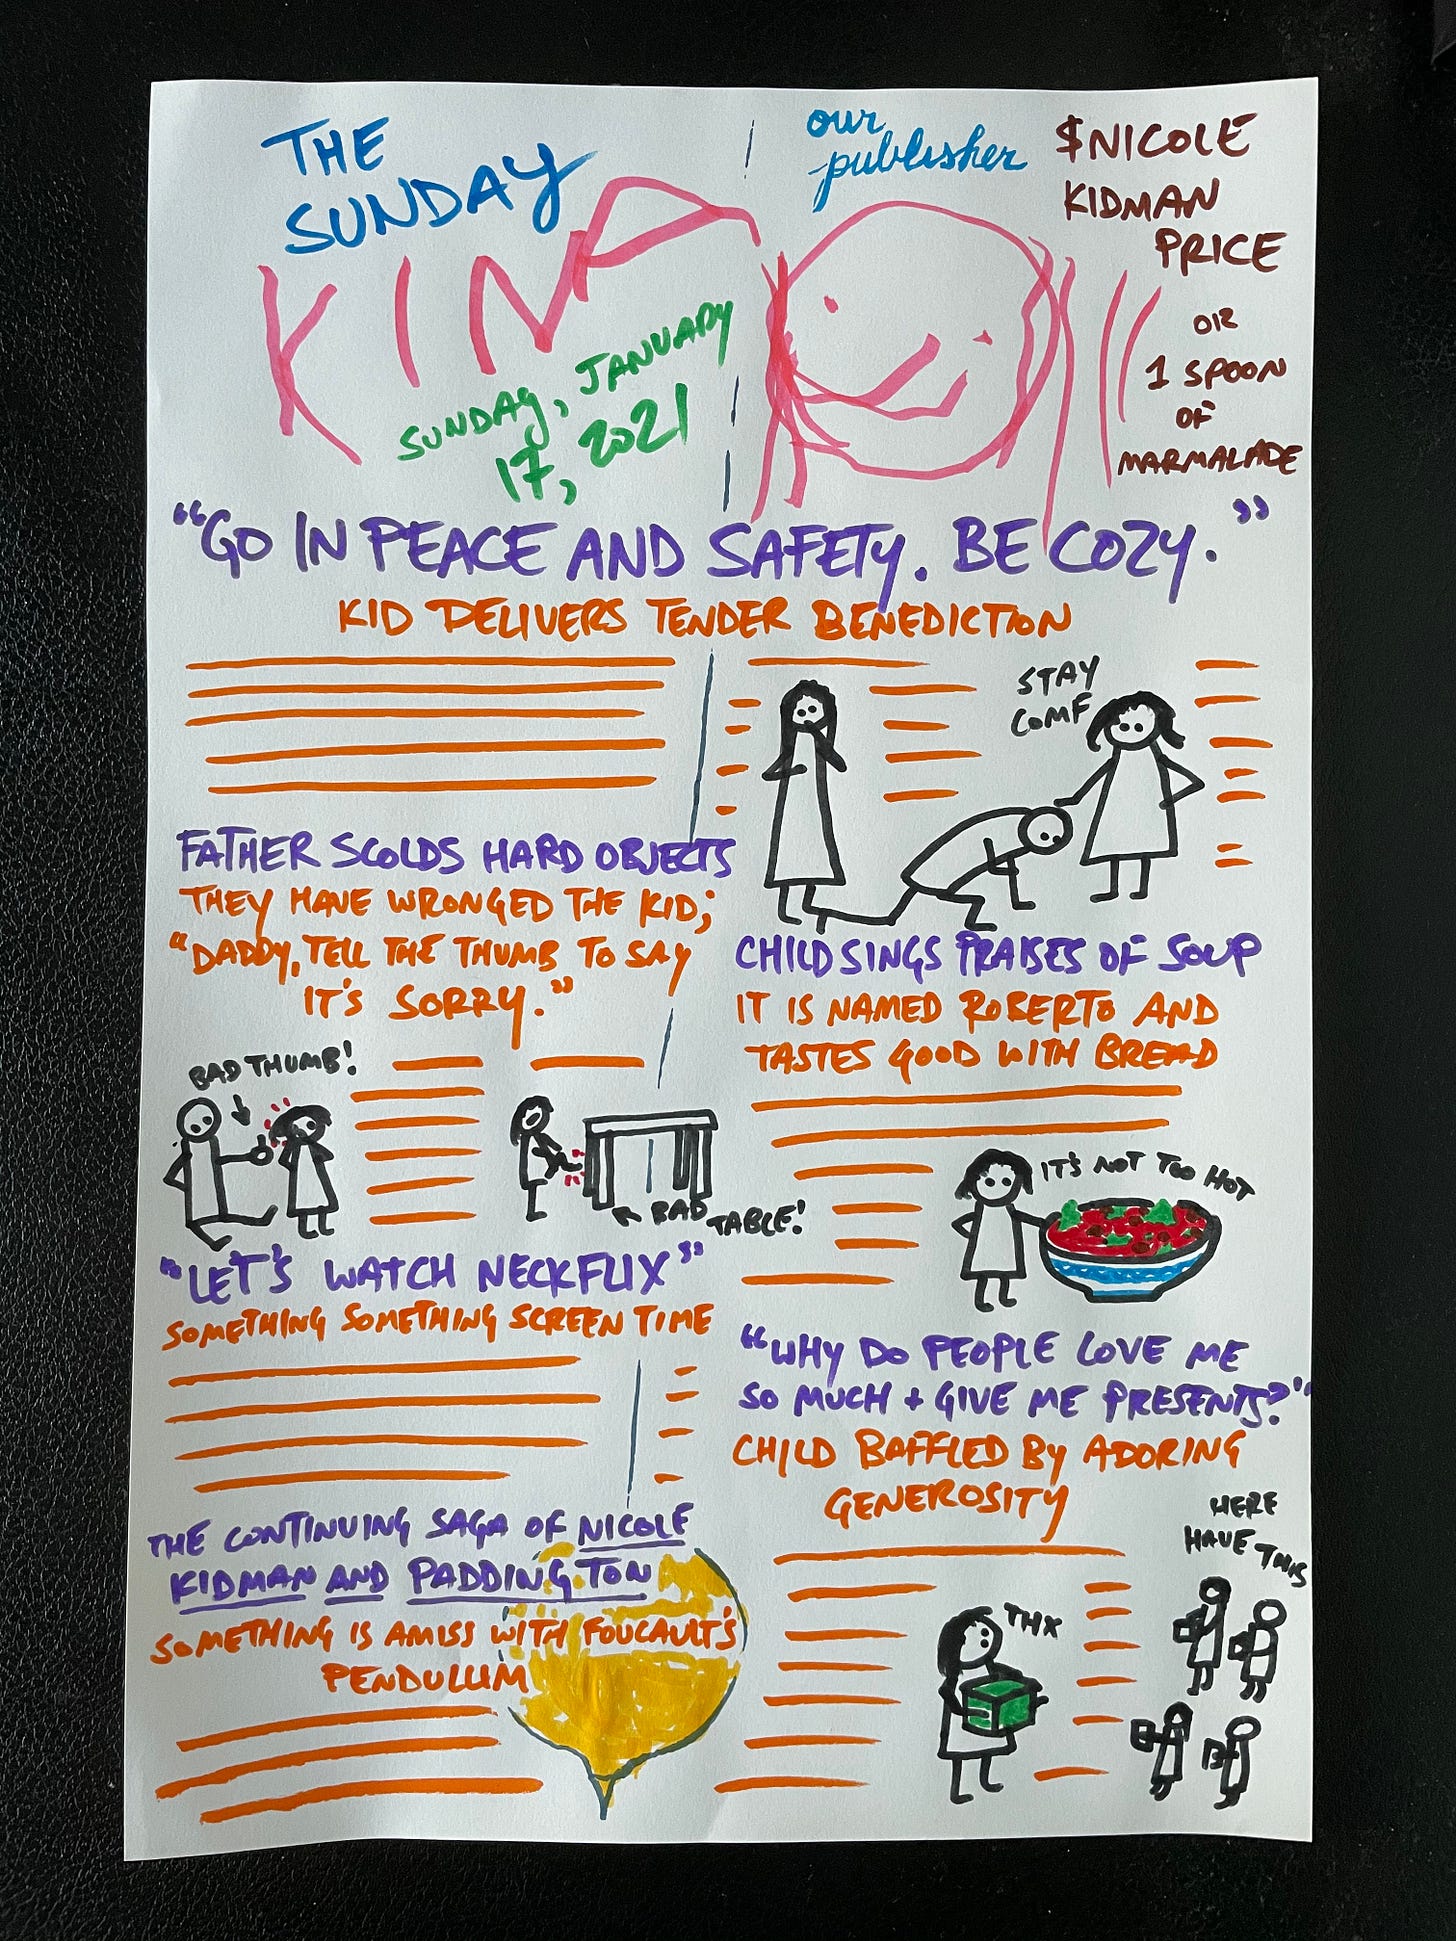 THE
SUNDAY
KIN
SUNDAY, JANUARY
17, 2021
our
publisher
$NICOLE
KIDMAN
PRICE
OR
1 SPOON
OF
MARMALADE
"GO IN PEACE AND SAFETY. BE COZY."
KID DELIVERS TENDER BENEDICTION
STAY
COMF
FATHER SCOLDS HARD OBJECTS
THEY HAVE WRONGED THE KID;
"DADDY, TELL THE THUMB TO SAY
IT'S SORRY."
BAD THUMB!
BAD TABLE!
"LET'S WATCH NECKFLIX"
SOMETHING SOMETHING SCREEN TIME
THE CONTINUING SAGA OF NICOLE
KIDMAN AND PADDINGTON
SOMETHING IS AMISS WITH FOUCAULT'S
PENDULUM
CHILD SINGS PRAISES OF SOUP
IT IS NAMED ROBERTO AND
TASTES GOOD WITH BREAD
IT'S NOT TOO HOT
"WHY DO PEOPLE LOVE ME
SO MUCH + GIVE ME PRESENTS?"
CHILD BAFFLED BY ADORING
GENEROSITY
HERE
HAVE THIS
THX